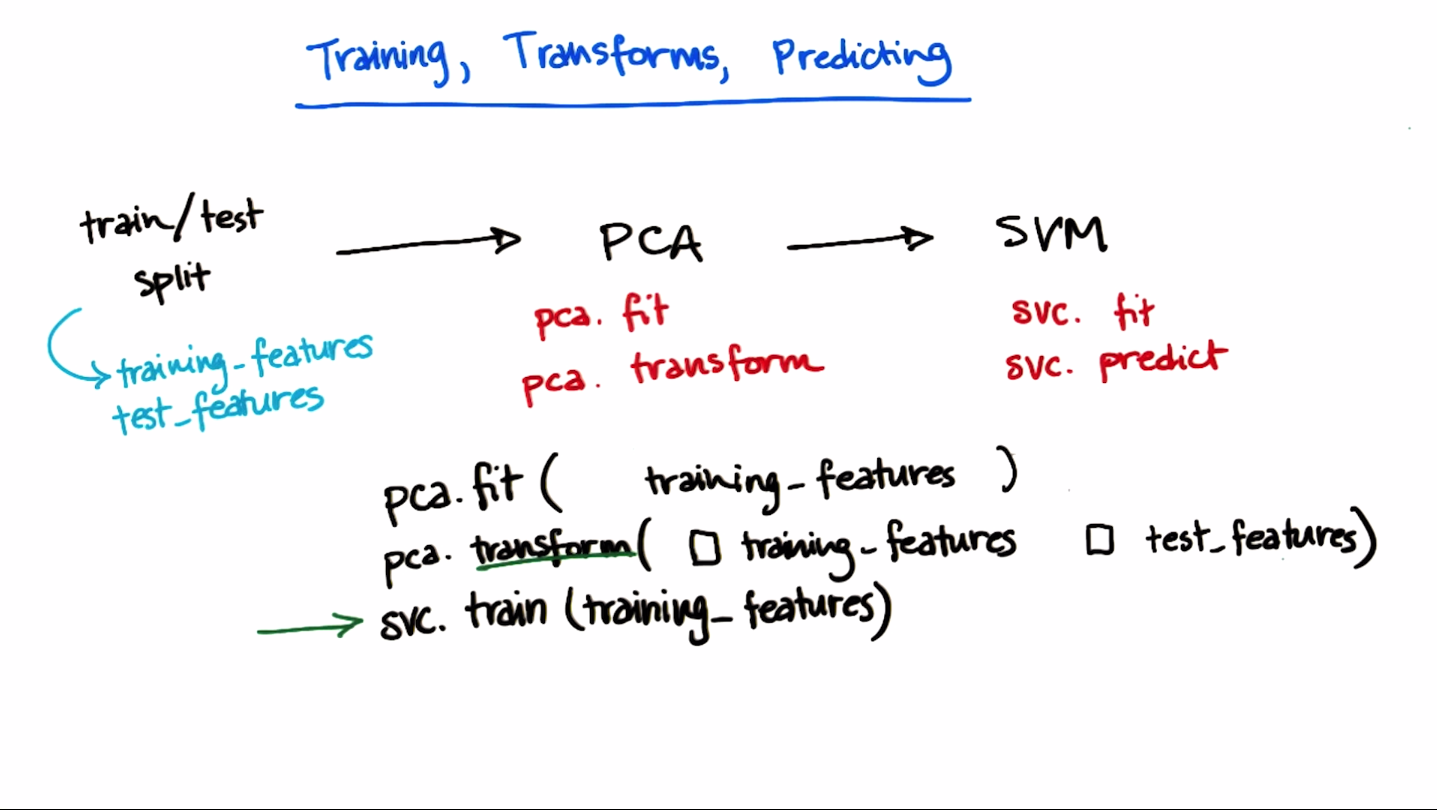 Training, Transforms, Predicting
train/test
split
training_features
test_features
PCA
pca. fit
pca. transform
SVM
svc. fit
svc. predict
pca.fit ( training_features )
pca. transform( □ training_features □ test_features)
svc. train (training_features)